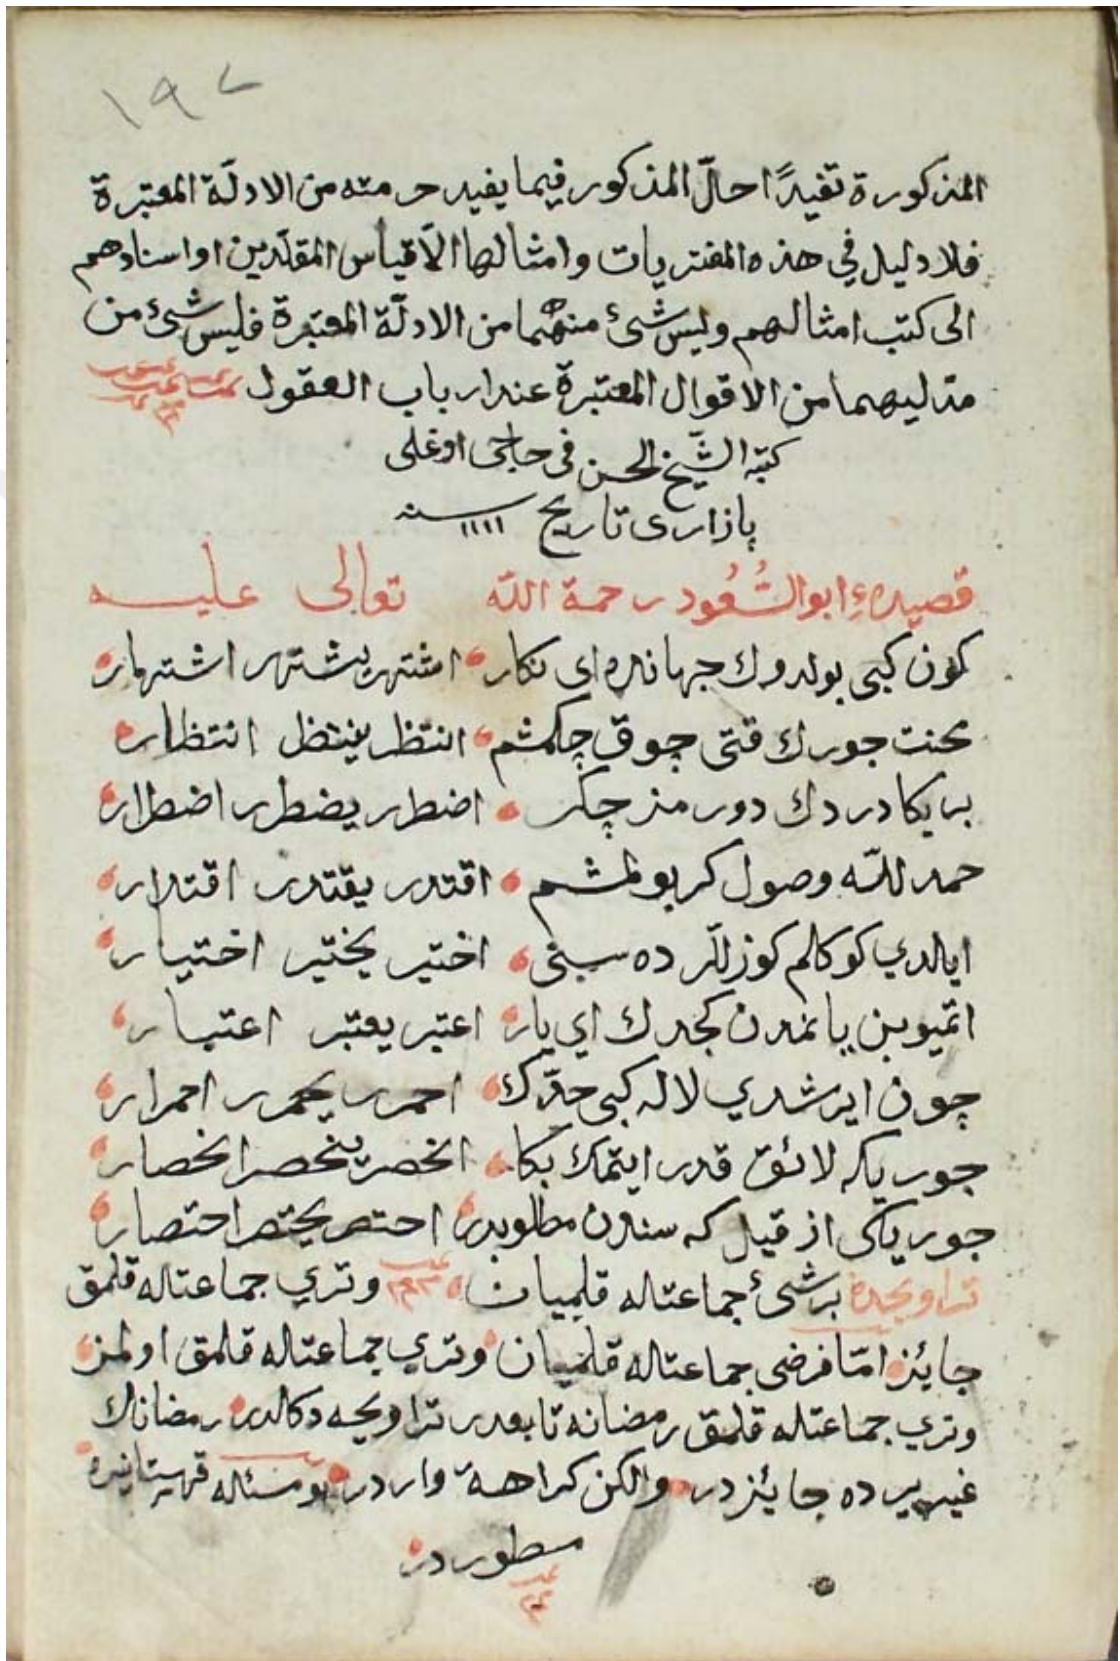 ١٩٧
المذكورة تقيدًا احالّ المذكور فيما يفيد حرمته من الادلّة المعتبرة
فلا دليل في هذه المفتريات وامثالها الّا قياس المقلّدين او اسنادهم
الى كتب امثالهم وليس شئ منهما من الادلّة المعتبرة فليس شئ من
مدليهما من الاقوال المعتبرة عند ارباب العقول
كتبه الشيخ الحسن فى حاجى اوغلى
پازارى تاريخ سنه ١١١١
قصيدهٔ ابو السُّعُود رحمة الله تعالى عليه
كون كبى بولدوك جهانده اى نكار اشتهر يشتهر اشتهار
محنت جورك قتى چوق چكمشم انتظر ينتظر انتظار
بر يكا دردك دورمز چكر اضطرر يضطرر اضطرار
حمد للّه وصول كر بولمشم اقتدر يقتدر اقتدار
ايالدي كوكلم كوزللر ده سنى اختير يختير اختيار
اتميوبن يانمدن كجدك اي يار اعتبر يعتبر اعتبار
چون ايرشدي لاله كبى خدّك احمرر يحمرر احمرار
جور يكه لائق قدر ايتمك بكا انحصر ينحصر انحصار
جور ياكى از قيل كه سندن مطلوبدر احتصر يحتصر احتصار
تراويحده بر شئ جماعتاله قلميان وتري جماعتاله قلمق
جايئز امّا فرضى جماعتاله قلميان وتري جماعتاله قلمق اولمز
وتري جماعتله قلمق رمضانه تابعدر تراويحه دكالدر رمضانك
غيرير ده جايئزدر والكن كراهة واردر بو مسئاله قهستانيده
مسطوردر